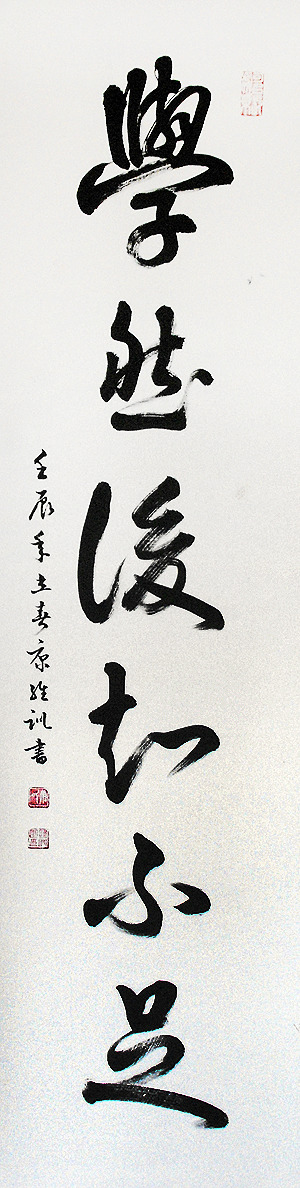 學然後知不足
壬辰年立春康維訓書